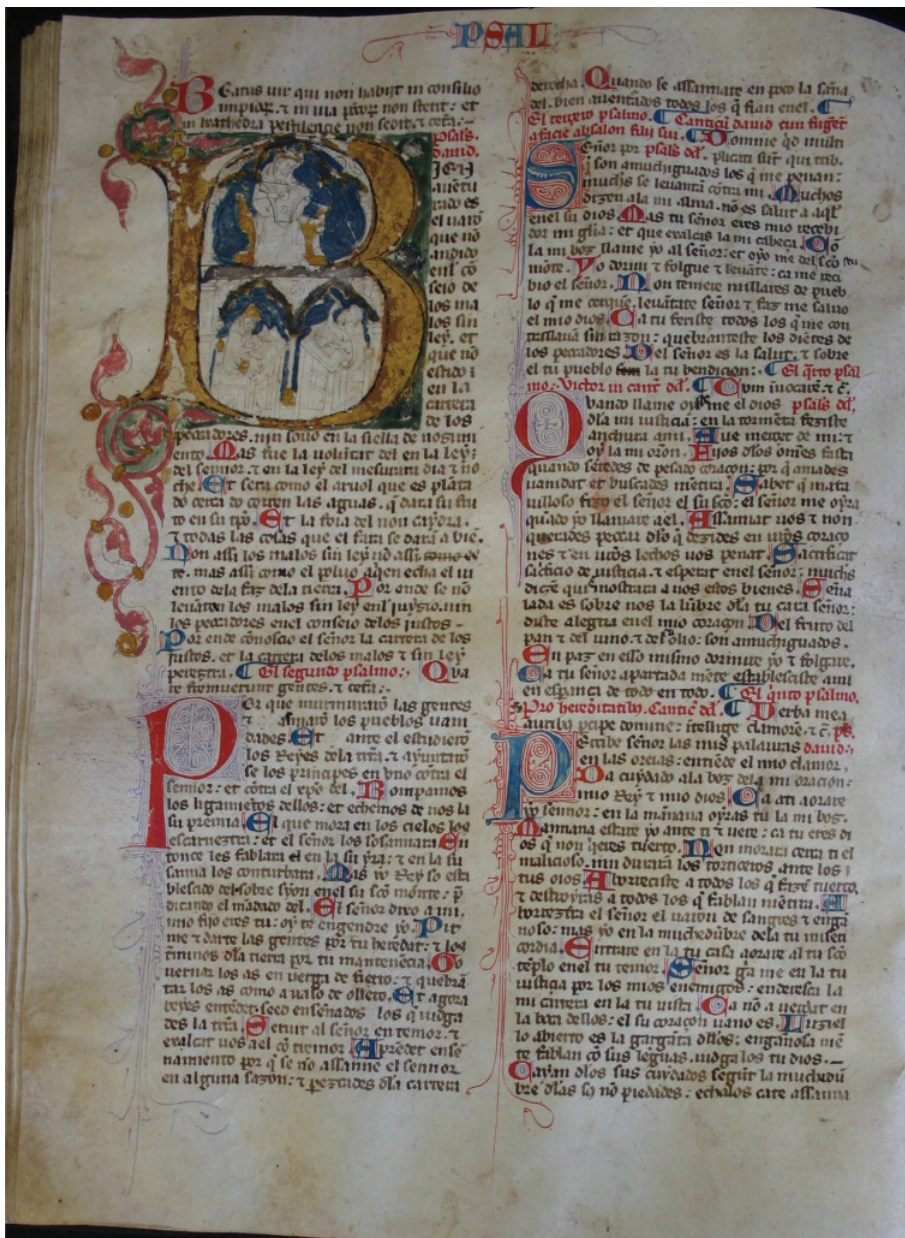 PSALI
Beatus uir qui non habijt in consilio
impior. ⁊ in uia pctor non stetit: et
in cathedra pestilencie non sedit. ⁊ cetã:-
psalꝰ.
dauid.
IEN
auetu
rado es
el uarõ
que nõ
andido
enl cõ
seio de
los ma
los sin
ley. et
que nõ
estido i
en la
carrera
de los
pecadores. nin souo en la siella de nosuni
ento. Mas fue la uoluntat del en la ley;
del sennor. ⁊ en la ley del mesurara dia ⁊ no
che. Et sera como el aruol que es planta
do cerca do corren las aguas. q̃ dara su fru
to en su tpo. Et la foia del non caydra.
⁊ todas las cosas que el fara se dara a biẽ.
Non assi los malos sin ley nõ assi
te. mas assi como el poluo aqen echa el ui
ento dela faz dela tierra. Por onde se nõ
leuaton los malos sin ley enl juyzio. nin
los peccadores enel conseio delos justos -
Por ende cõnoscio el señor la carrera de los
justos. et la carrera delos malos ⁊ sin ley
pereztra. ¶ El segundo psalmo:. Qua
re fremuerunt gentes. ⁊ cetã:.
Por que murmuraron las gentes
⁊ asmarõ los pueblos uani
dades. Et ante el estudierõ
los Reyes dela trra. ⁊ ayuntarõ
se los principes en vno cõtra el
sennor: et cõtra el xpo del. Rompamos
los ligamietos dellos: et echemos de nos la
su premia. El que mora en los cielos los
escarneztra: et el señor los sosannara En
tonce les fablara el en la su yra: ⁊ en la su
sanna los conturbara. Mas yo Rey so esta
blesado del sobre syon enel su scõ mõnte: p̃
dicando el mãdado del. El señor dixo a mi.
mio fijo eres tu: oy te engendre yo. Pit
me ⁊ darte las gentes por tu heredat: ⁊ los
t̃minos dla tierra por tu mantenẽcia. Go
uernar los as en verga de fierro: ⁊ quebrã
tar los as como a uaso de ollero. Et agora
reyes entẽdet. seed enseñados los q̃ iudga
des la trra. Seruit al señor en temor. ⁊
exalcat uos ael cõ tremor. Aprẽdet ense
namiento por q̃ se nõ assanne el sennor
en alguna sazon: ⁊ perezcades dla carrera
derecha. Quando se assannare en poco la saña
del. bien auenturados todos los q̃ fian enel. ¶
El tercero psalmo. ¶ Canticũ dauid cun fugeret
a facie absalon filij sui. ¶ Domine qd multi
Señor por psalꝰ dd. plicati sũt qui trib.
q̃ son amuchiguados los q̃ me penan:
muchos se leuantã cõtra mi. Muchos
dizen ala mi alma. nõ es salut a aq̃l
enel su dios. Mas tu señor eres mio recebi
dor mi glia: et que exalcas la mi cabeça. Cõ
la mi boz llame yo al señor: et oyo me del scõ su
mõte. Yo dormi ⁊ folgue ⁊ leuãte: ca me reci
bio el señor. Non temere millares de pueb
lo q̃ me cerque. leuãtate señor ⁊ faz me saluo
el mio dios. Ca tu feriste todos los q̃ me con
trallauã sin razon: quebranteste los diẽtes de
los peccadores. Del señor es la salut. ⁊ sobre
el tu pueblo la tu bendicion:. ¶ El q̃rto psal
mo:. Victor in canc̃ dd. ¶ Cum inuocarẽ. ⁊ c̃.
Quando llame oyo me el dios psalꝰ dd.
dla mi iusticia: en la tormẽta feziste
anchura ami. Aue merçet de mi: ⁊
oy la mi oron. Fijos dlos omẽs fasta
quando seredes de pesado coraçon: por q̃ amades
uanidat et buscades mẽtira. Sabet q̃ mara
uilloso fizo el señor el su scõ: el señor me oyra
quãdo yo llamare a el. Assannat uos ⁊ non
querades peccar dlo q̃ dezides en uros coraço
nes ⁊ en uros lechos uos penat. Sacrificat
sacrficio de iusticia. ⁊ esperat enel señor: muchos
dizẽ qui mostrara a nos estos bienes. Seña
lada es sobre nos la lũbre dla tu cara señor:
diste alegria enel mio coraçon. Del fruto del
pan ⁊ del uino. ⁊ del olio: son amuchiguados.
En paz en esso mismo dormire yo ⁊ folgue.
Ca tu señor apartada mẽte establesciste ami
en esperança de todo en todo. ¶ El q̃nto psalmo.
Pro hereditatibꝰ. Canticũ dd. ¶ Verba mea
auribꝰ pcipe domine: itellige clamorẽ. ⁊ c̃. ps.
Rescibe señor las mis palauras dauid:.
en las oreias: entiẽde el mio clamor.
Da cuydado ala boz dela mi oracion:
mio Rey ⁊ mio dios. Ca ati aorare
yo sennor: en la mañana oyras tu la mi boz.
Mannana estare yo ante ti ⁊ vere: ca tu eres di
os q̃ non q̃eres tuerto. Non morara cerca ti el
malicioso. nin durarã los torticeros ante los
tus oios. Aborreciste a todos los q̃ fazẽ tuerto.
⁊ destruyras a todos los q̃ fablan mẽtira. A
borreztra el señor el uaron de sangres ⁊ enga
noso: mas yo en la muchedũbre dela tu miseri
cordia. Entrare en la tu casa aorare al tu scõ
tẽplo enel tu temor. Señor g̃a me en la tu
iusticia por los mios enemigos: enderesca la
mi carrera en la tu uista. Ca nõ a uerdat en
la boca dellos: el su coraçon uano es. Luziel
lo abierto es la gargãta dllos: engañosa mẽ
te fablan cõ sus lẽguas. iudga los tu dios. -
Cayan dlos sus cuydados segũt la muchedũ
bre dlas sus nõ piedades: echalos care assanna